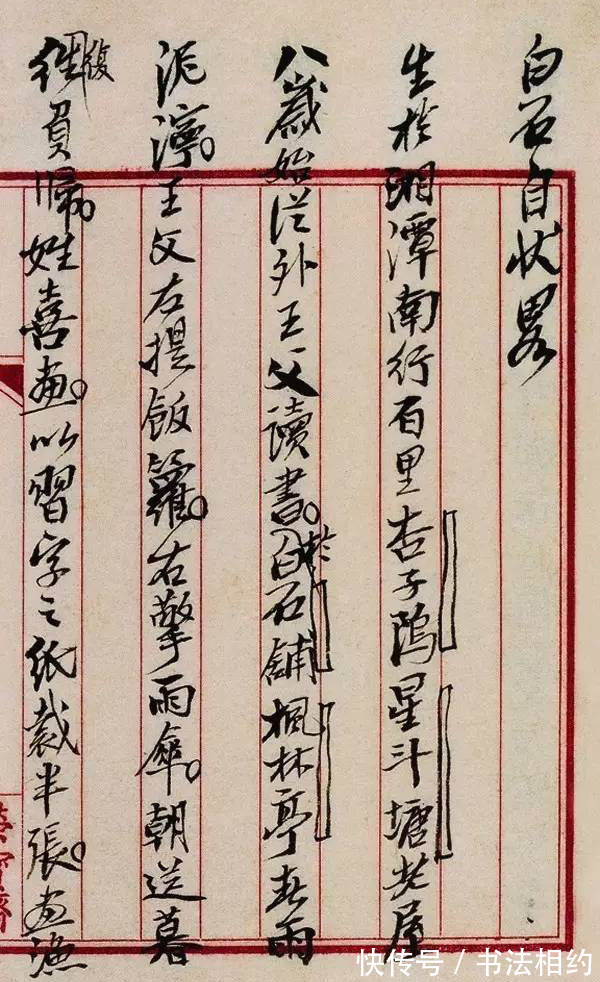 白石自状畧
生於湘潭南行百里杏子隖星斗塘老屋
八歲始從外王父讀書。於白石舖楓林亭春雨
泥濘。王父左提飯籮。右擎雨傘。朝送暮
復負歸。姓喜畫。以習字之紙裁半張。畫漁
榮宝齋
快传号/书法相约